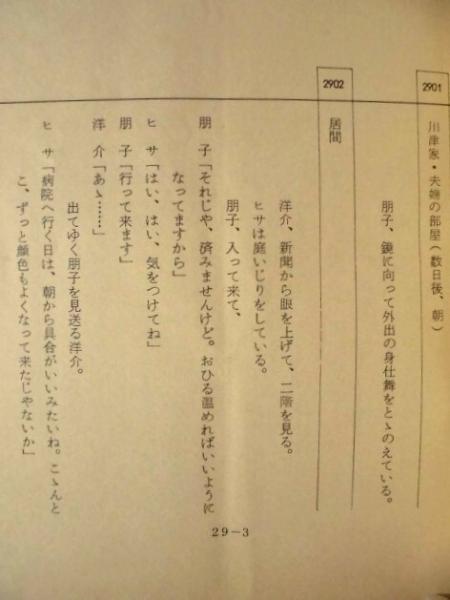 2901
川津家・夫婦の部屋(数日後、朝)
朋子、鏡に向って外出の身仕舞をとゝのえている。
2902
居間
洋介、新聞から眼を上げて、二階を見る。
ヒサは庭いじりをしている。
朋子、入って来て、
朋 子「それじゃ、済みませんけど。おひる温めればいいように
なってますから」
ヒ サ「はい、はい、気をつけてね」
朋 子「行って来ます」
洋 介「あゝ……」
出てゆく朋子を見送る洋介。
ヒ サ「病院へ行く日は、朝から具合がいいみたいね。こゝんと
こ、ずっと顔色もよくなって来たじゃないか」
29-3